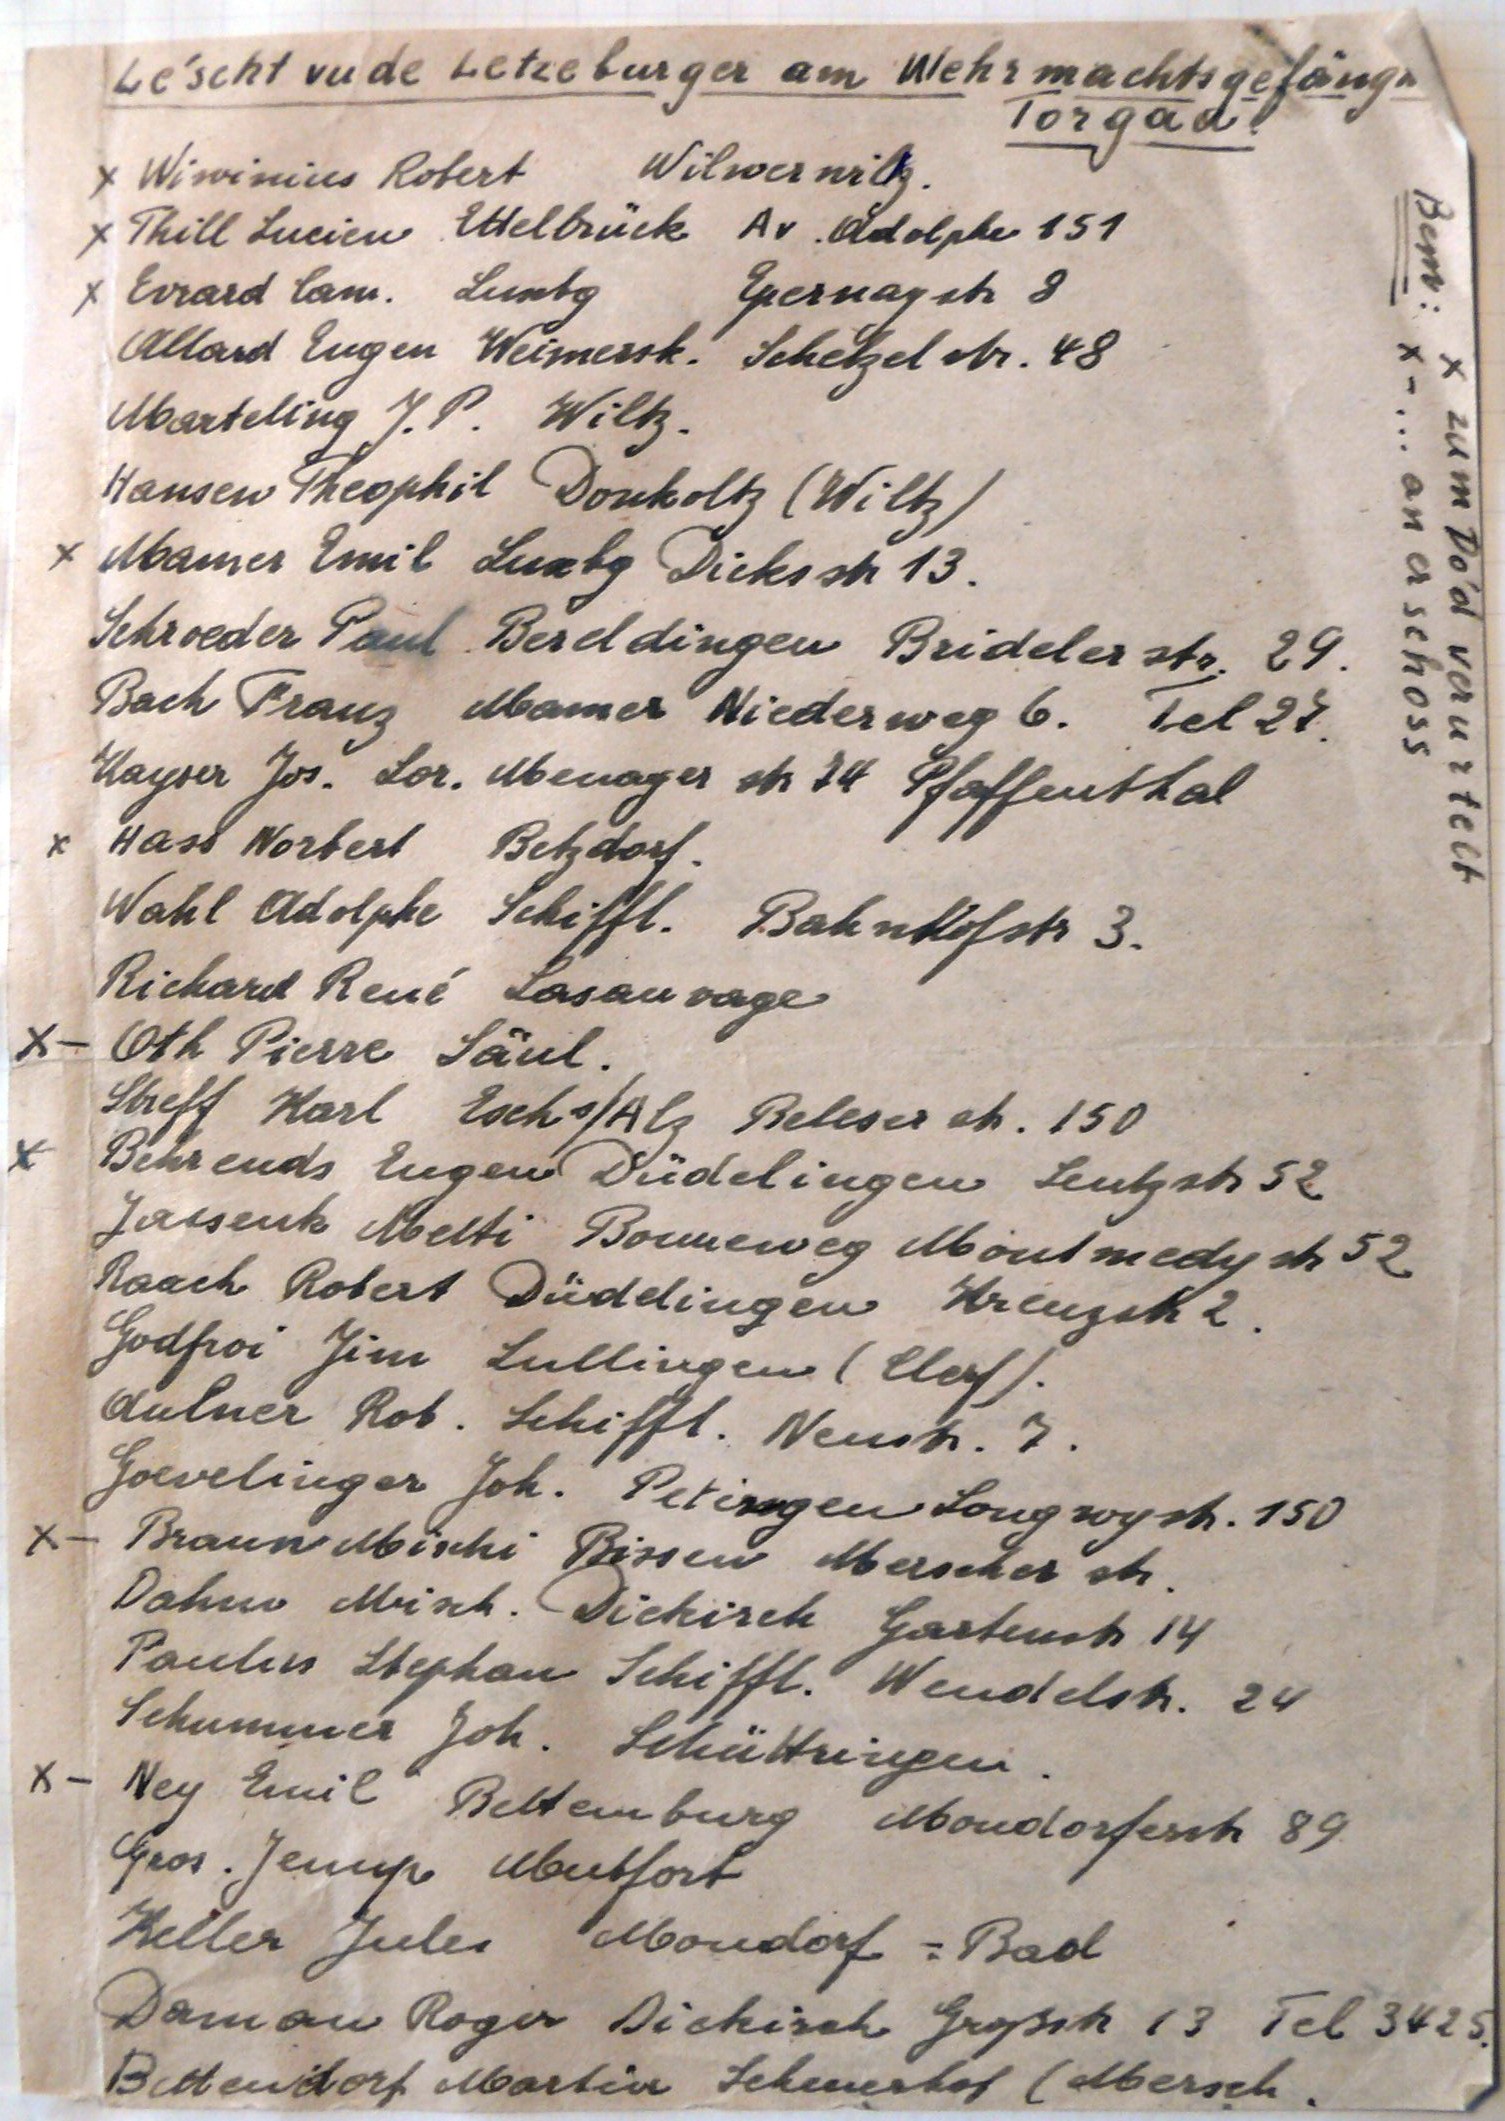 Le'scht vu de Letzeburger am Wehrmachtsgefängn
Torgau!
x Wiwinius Robert Wilwerwiltz.
x Thill Lucien Ettelbrück Av. Adolphe 151
x Evrard Cam. Luxbg Epernaystr 8
Allard Eugen Weimersk. Schetzelstr. 48
Marteling J. P. Wiltz.
Hansen Theophil Donkoltz (Wiltz)
x Mamer Emil Luxbg Dicksstr 13.
Schroeder Paul Bereldingen Bridelerstr. 29.
Bach Franz Mamer Niederweg 6. Tel 27.
Kayser Jos. Lor. Menager str 24 Pfaffenthal
x Hass Norbert Betzdorf.
Wahl Adolphe Schiffl. Bahnhofstr 3.
Richard René Lasauvage
x- Oth Pierre Säul.
Streff Karl Esch s/Alz Beleser str. 150
x Behrends Eugen Düdelingen Lentzstr 52
Metti Bonneweg Montmedystr 52
Raach Robert Düdelingen Kreuzstr 2.
Godfroi Jim Lullingen (Clerf).
Aulner Rob. Schiffl. Neustr. 7.
Goevelinger Joh. Petingen Longwystr. 150
x- Braun Mischi Bissen Merscher str.
Dahm Misch. Diekirch Gartenstr 14
Paulus Stephan Schiffl. Wendelstr. 24
Schummer Joh. Schüttringen.
x- Ney Emil Bettemburg Mondorferstr 89
Gros. Jemp Mutfort
Keller Jules Mondorf = Bad
Daman Roger Diekirch Großstr 13 Tel 3425.
Bettendorf Martin Scheuerhof (Mersch.
Bem: x zum Do'd verurtelt
x- ... an erschoss